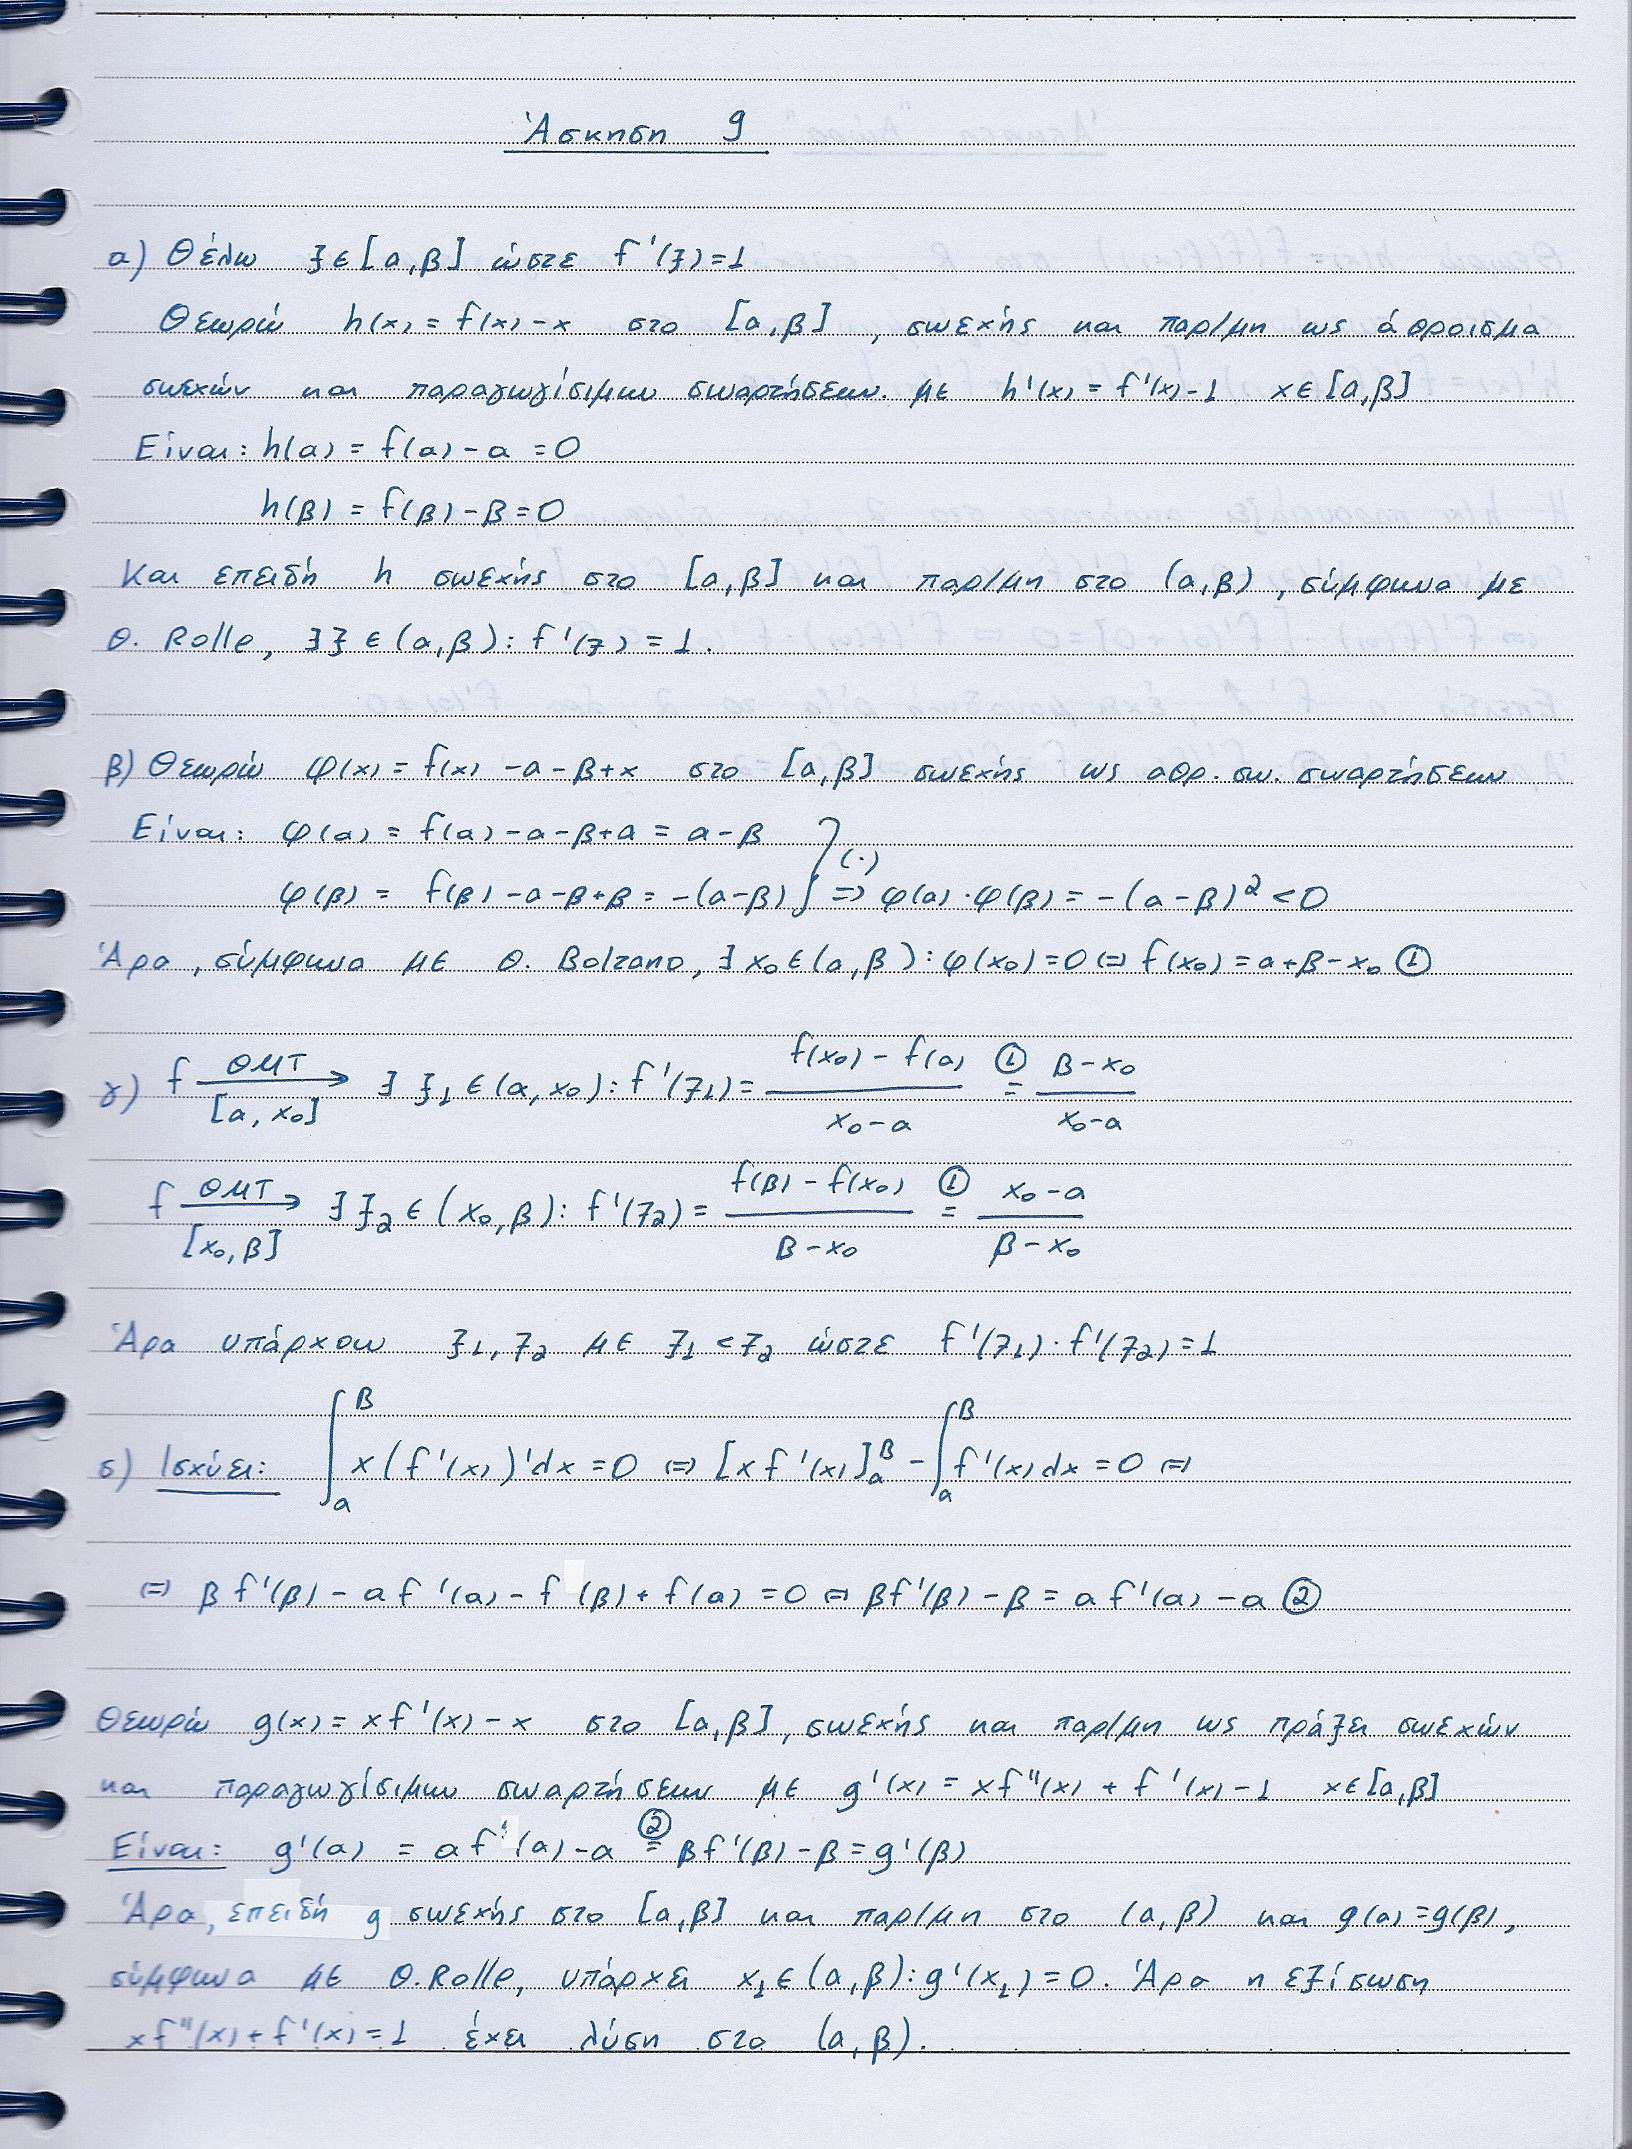 Άσκηση 9
α) Θέλω ξ∈[α,β] ώστε f'(ξ)=1
Θεωρώ h(x) = f(x) - x στο [α,β], συνεχής και παρ/μη ως άθροισμα
συνεχών και παραγωγίσιμων συναρτήσεων. με h'(x) = f'(x)-1 x∈[α,β]
Είναι: h(α) = f(α) - α = 0
h(β) = f(β) - β = 0
Και επειδή h συνεχής στο [α,β] και παρ/μη στο (α,β), σύμφωνα με
Θ. Rolle, ∃ξ∈(α,β): f'(ξ) = 1.
β) Θεωρώ φ(x) = f(x) - α - β + x στο [α,β] συνεχής ως αθρ. συν. συναρτήσεων
Είναι: φ(α) = f(α) - α - β + α = α - β
φ(β) = f(β) - α - β + β = -(α-β) } (·) => φ(α)·φ(β) = -(α-β)² < 0
Άρα, σύμφωνα με Θ. Bolzano, ∃x₀∈(α,β): φ(x₀)=0 ⇔ f(x₀) = α+β-x₀ ①
γ) f ΘΜΤ→ [α,x₀] ∃ξ₁∈(α,x₀): f'(ξ₁) = (f(x₀) - f(α))/(x₀-α) ①= (β-x₀)/(x₀-α)
f ΘΜΤ→ [x₀,β] ∃ξ₂∈(x₀,β): f'(ξ₂) = (f(β) - f(x₀))/(β-x₀) ①= (x₀-α)/(β-x₀)
Άρα υπάρχουν ξ₁, ξ₂ με ξ₁<ξ₂ ώστε f'(ξ₁)·f'(ξ₂)=1
δ) Ισχύει: ∫_α^β x(f'(x))'dx = 0 ⇔ [xf'(x)]_α^β - ∫_α^β f'(x)dx = 0 ⇔
⇔ βf'(β) - αf'(α) - f(β) + f(α) = 0 ⇔ βf'(β) - β = αf'(α) - α ②
Θεωρώ g(x) = xf'(x) - x στο [α,β], συνεχής και παρ/μη ως πράξει συνεχών
και παραγωγίσιμων συναρτήσεων με g'(x) = xf''(x) + f'(x) - 1 x∈[α,β]
Είναι: g'(α) = αf'(α) - α ②= βf'(β) - β = g'(β)
Άρα, επειδή g συνεχής στο [α,β] και παρ/μη στο (α,β) και g(α)=g(β),
σύμφωνα με Θ. Rolle, υπάρχει x₁∈(α,β): g'(x₁)=0. Άρα η εξίσωση
xf''(x)+f'(x)=1 έχει λύση στο (α,β).